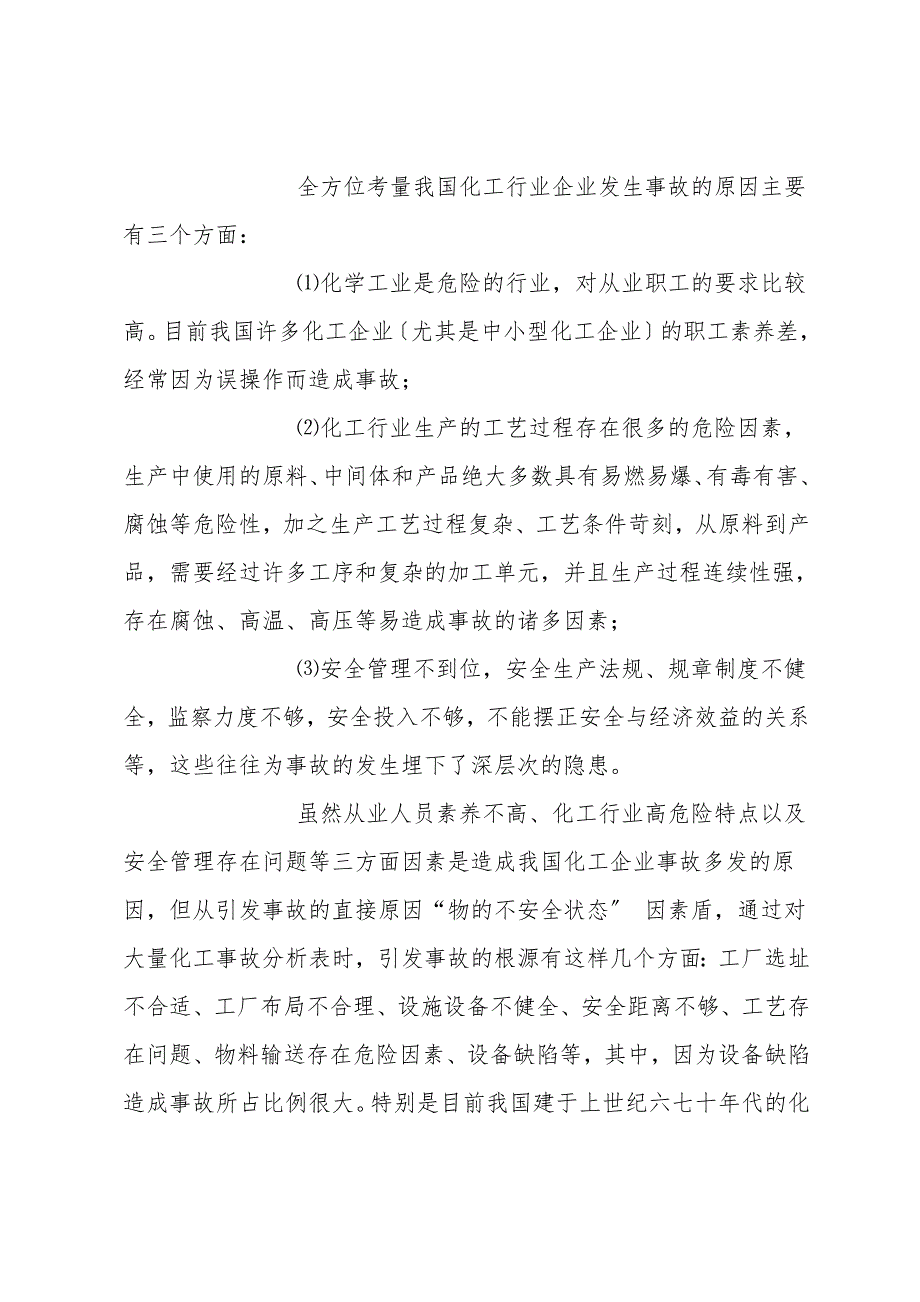 全方位考量我国化工行业企业发生事故的原因主要
有三个方面：
⑴化学工业是危险的行业，对从业职工的要求比较
高。目前我国许多化工企业〔尤其是中小型化工企业〕的职工素养差，
经常因为误操作而造成事故；
⑵化工行业生产的工艺过程存在很多的危险因素，
生产中使用的原料、中间体和产品绝大多数具有易燃易爆、有毒有害、
腐蚀等危险性，加之生产工艺过程复杂、工艺条件苛刻，从原料到产
品，需要经过许多工序和复杂的加工单元，并且生产过程连续性强，
存在腐蚀、高温、高压等易造成事故的诸多因素；
⑶安全管理不到位，安全生产法规、规章制度不健
全，监察力度不够，安全投入不够，不能摆正安全与经济效益的关系
等，这些往往为事故的发生埋下了深层次的隐患。
虽然从业人员素养不高、化工行业高危险特点以及
安全管理存在问题等三方面因素是造成我国化工企业事故多发的原
因，但从引发事故的直接原因“物的不安全状态〞 因素盾，通过对
大量化工事故分析表时，引发事故的根源有这样几个方面：工厂选址
不合适、工厂布局不合理、设施设备不健全、安全距离不够、工艺存
在问题、物料输送存在危险因素、设备缺陷等，其中，因为设备缺陷
造成事故所占比例很大。特别是目前我国建于上世纪六七十年代的化